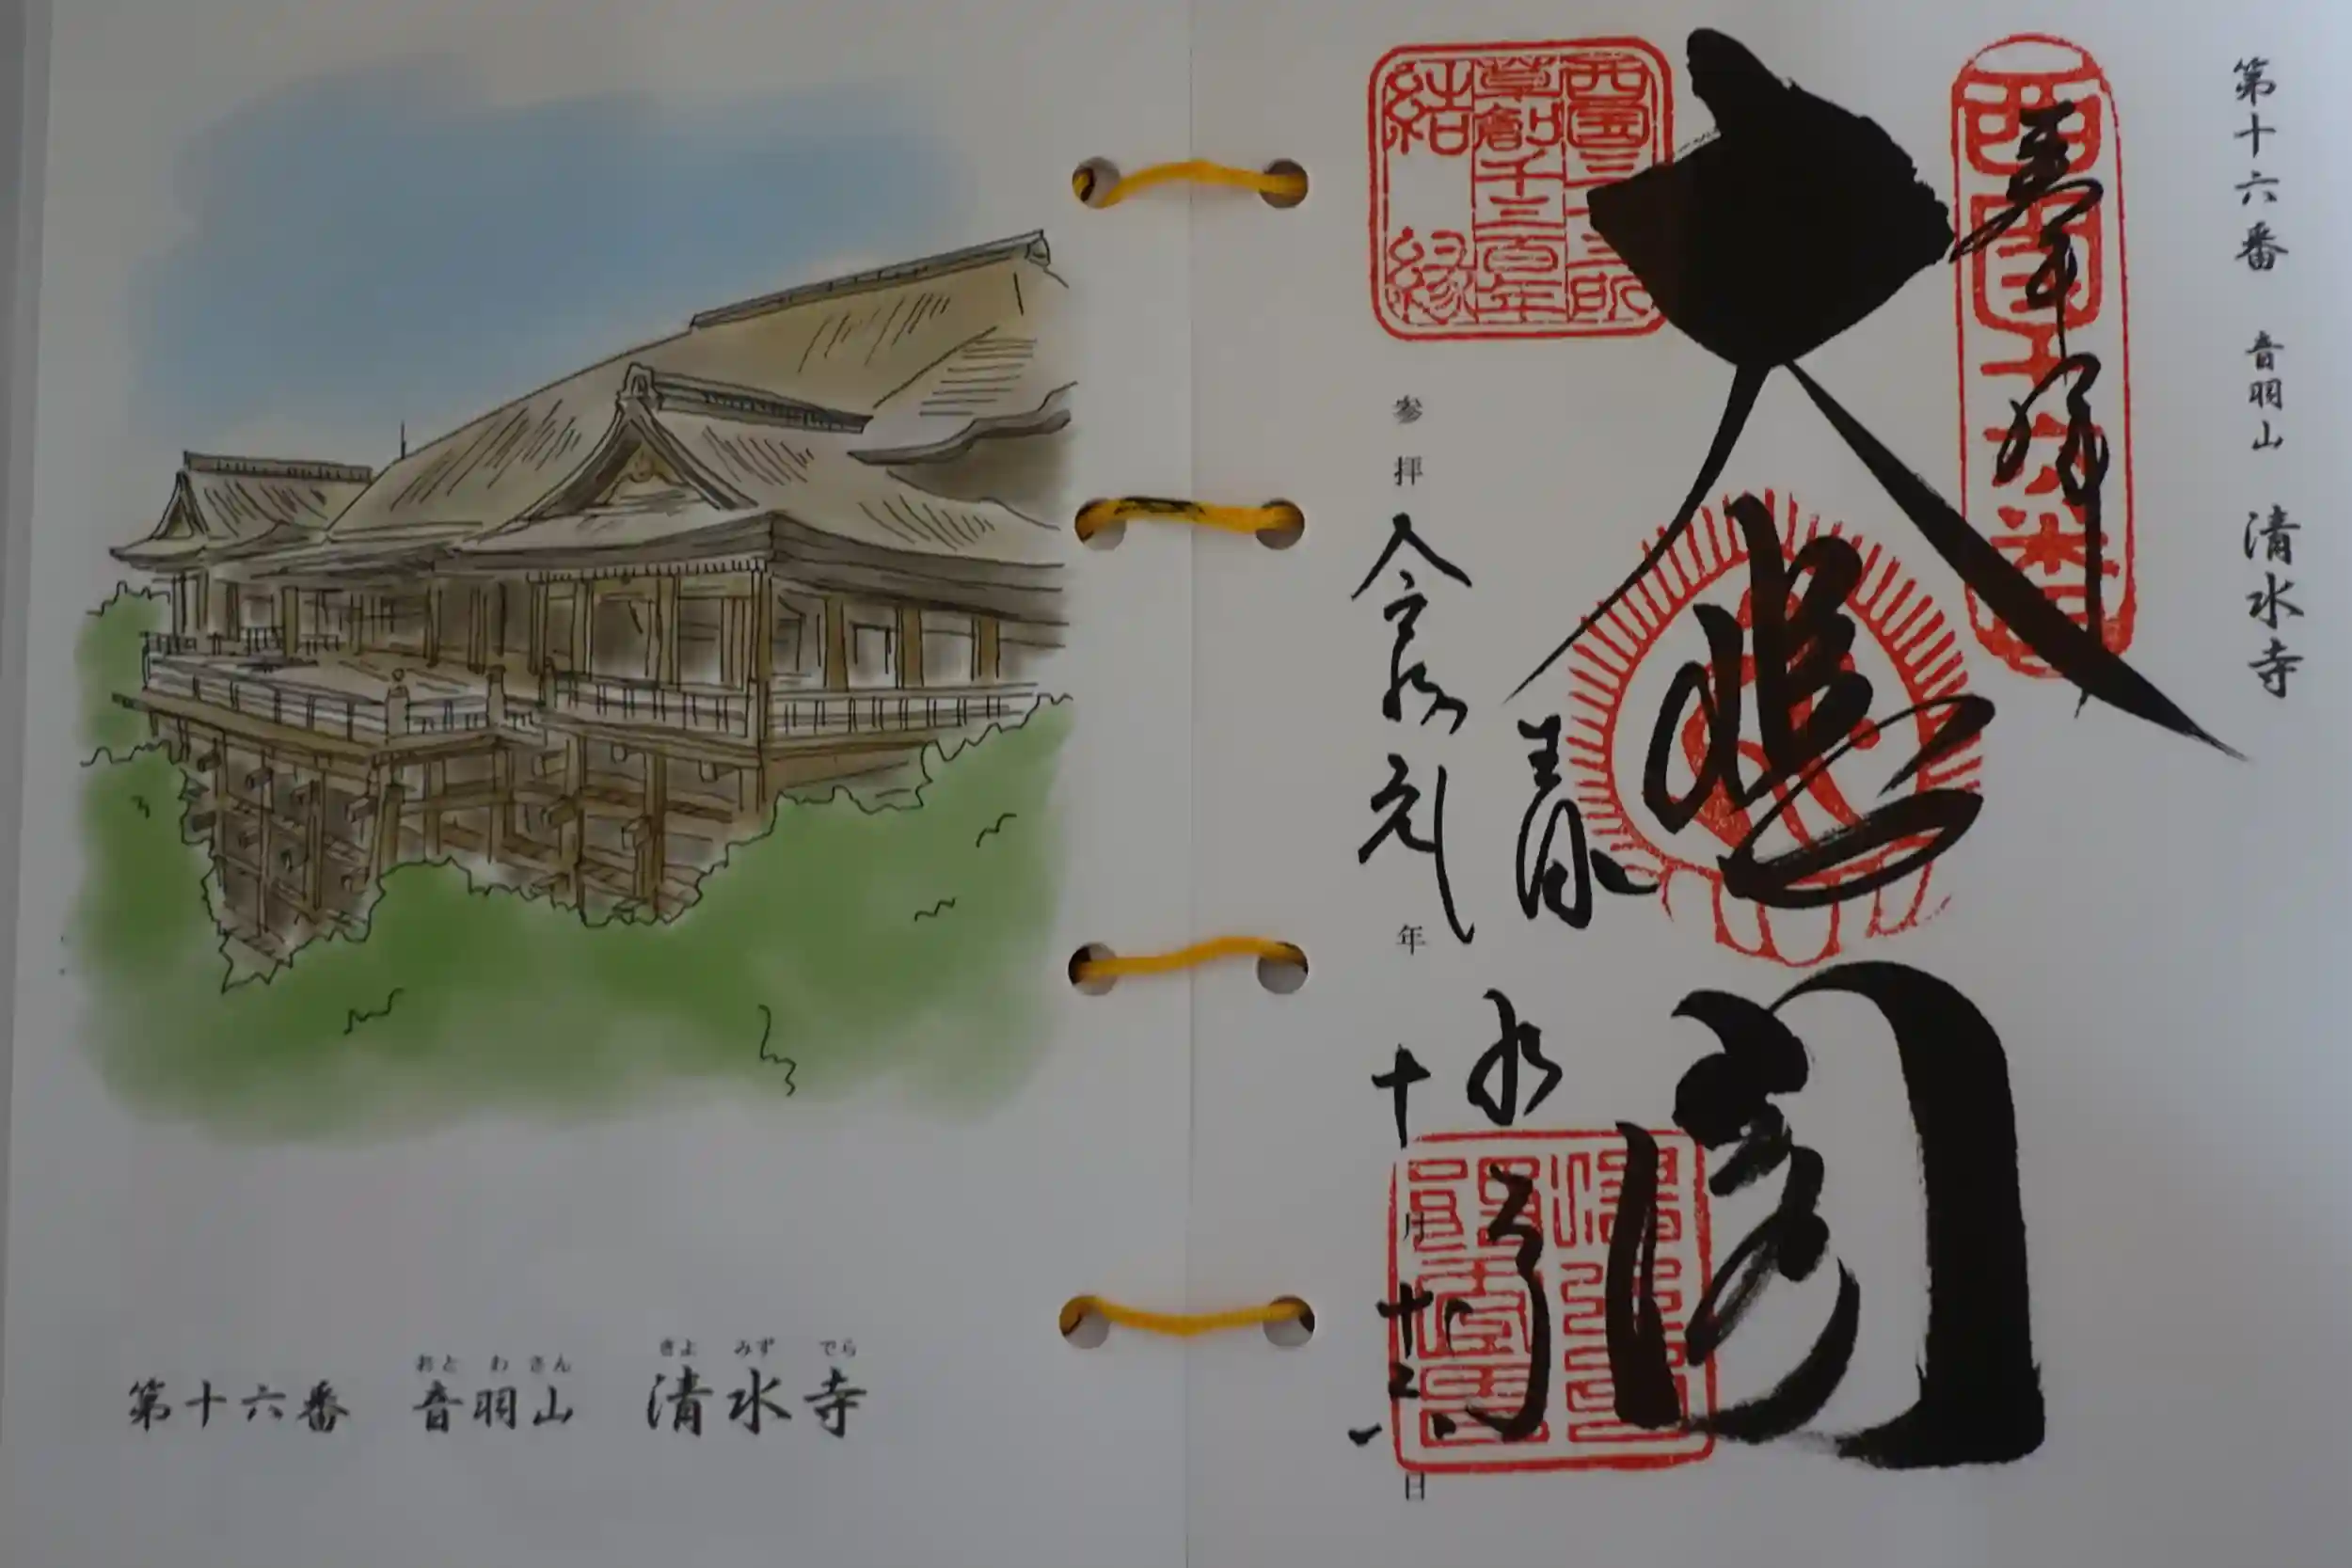 おと わ さん きよ みず でら
第十六番 音羽山 清水寺
第十六番 音羽山 清水寺
奉拝
西国十六番
大悲閣
西國三十三所
草創千三百年
結縁
清水寺
参拝 令和元年 十月 日